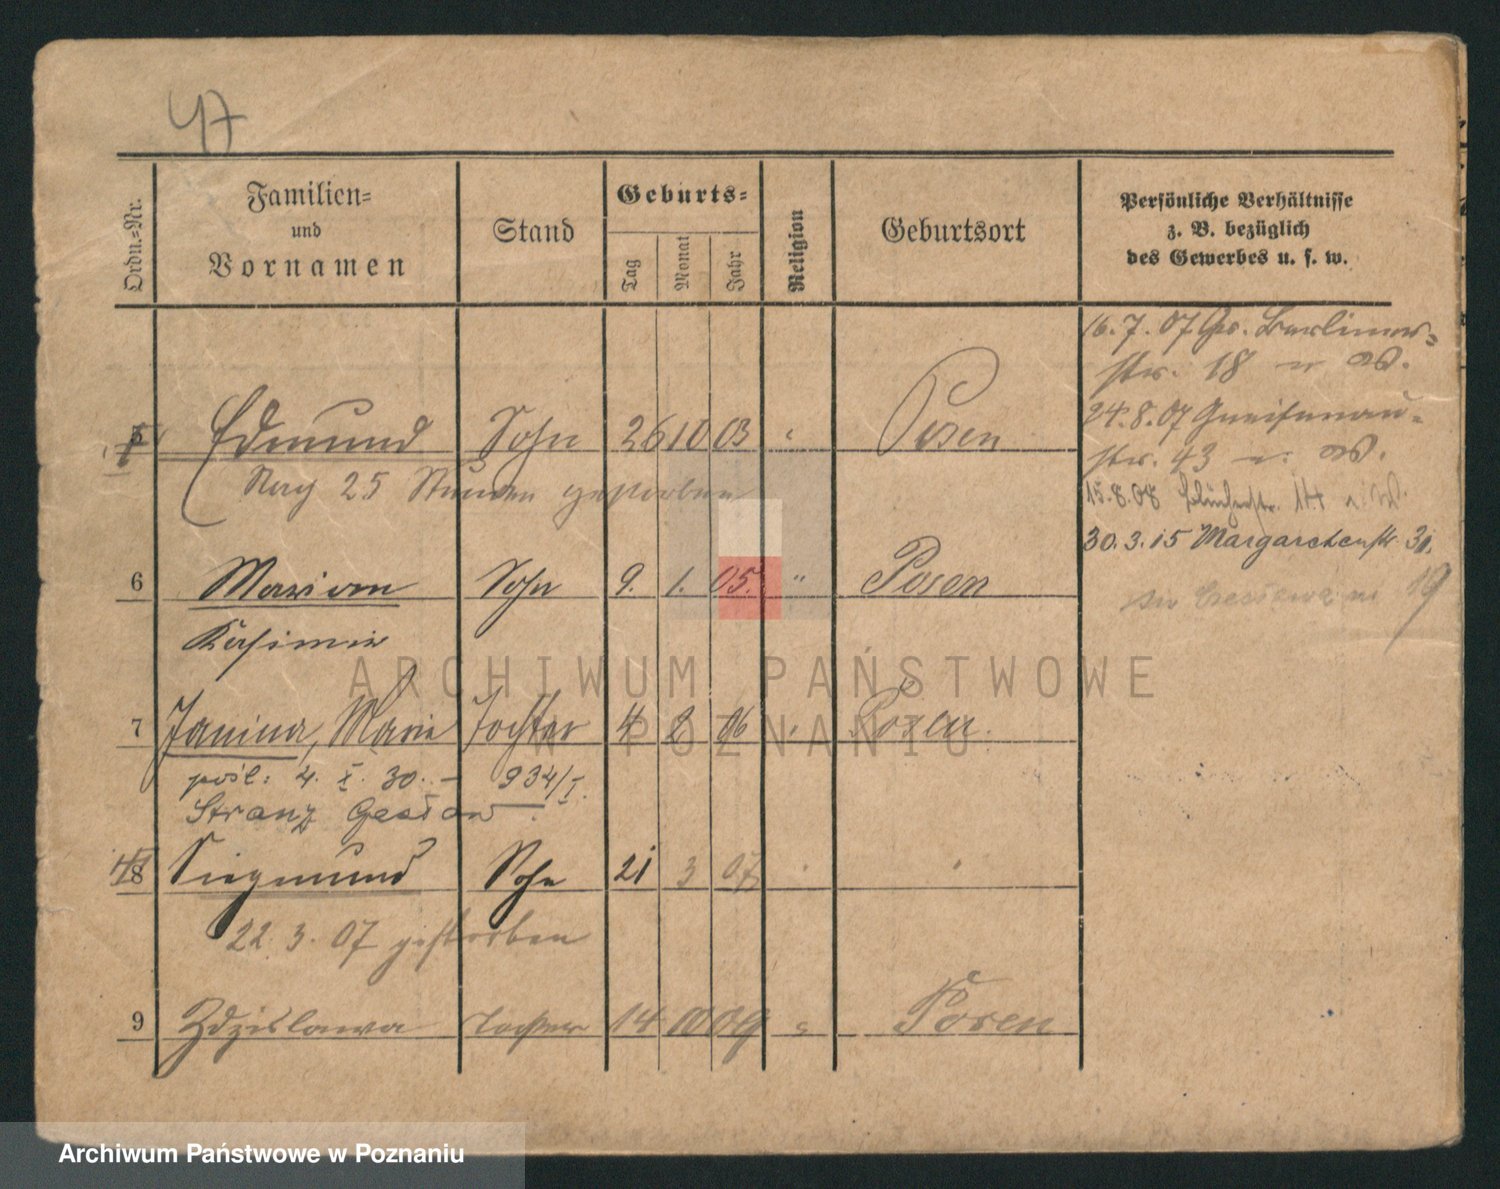 47
Ordn.-Nr.
Familien-
und
Vornamen
Stand
Geburts-
Tag
Monat
Jahr
Religion
Geburtsort
Persönliche Verhältnisse
z. B. bezüglich
des Gewerbes u. s. w.
16. 7. 07 Gr. Berliner-
str. 18
24. 8. 07 Gneisenau-
str. 43
15. 8. 08 Blücherstr. 14
30. 3. 15 Margaretenstr. 31.
19
5 Edmund Sohn 26 10 03 " Posen
Nach 25 Stunden gestorben
6 Marian Sohn 9. 1. 05. " Posen
Kasimir
7 Janina, Marie Tochter 4 2 06 " Posen.
pośl: 4. X. 30. – 934/I.
Stranz Gesław
8 Siegmund Sohn 21 3 07 " "
22. 3. 07 gestorben
9 Zdzislawa Tochter 14 10 09 " Posen
ARCHIWUM PAŃSTWOWE
W POZNANIU
Archiwum Państwowe w Poznaniu